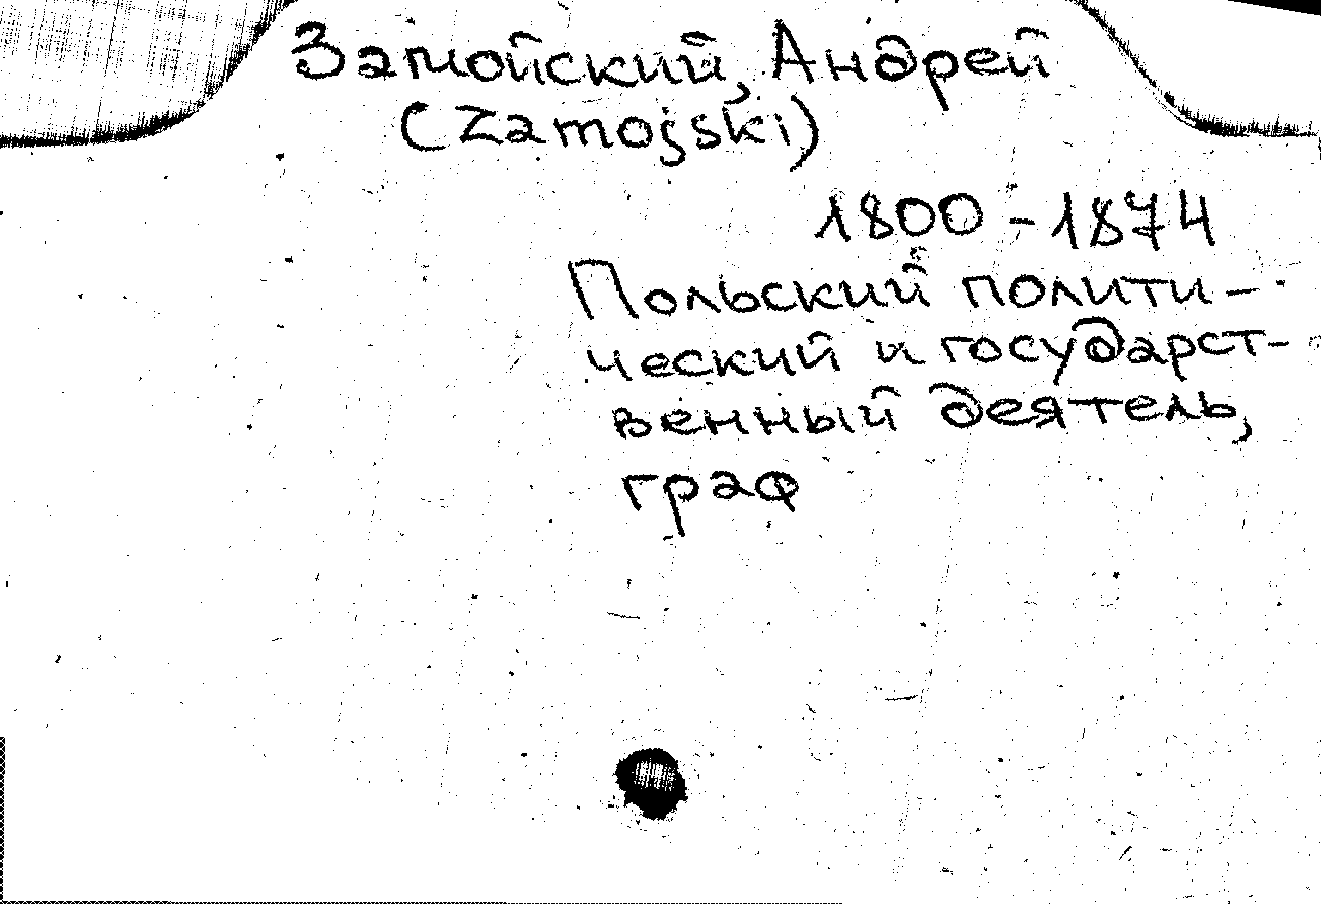 Замойский, Андрей
(Zamojski)
1800-1874
Польский полити-
ческий и государст-
венный деятель,
граф